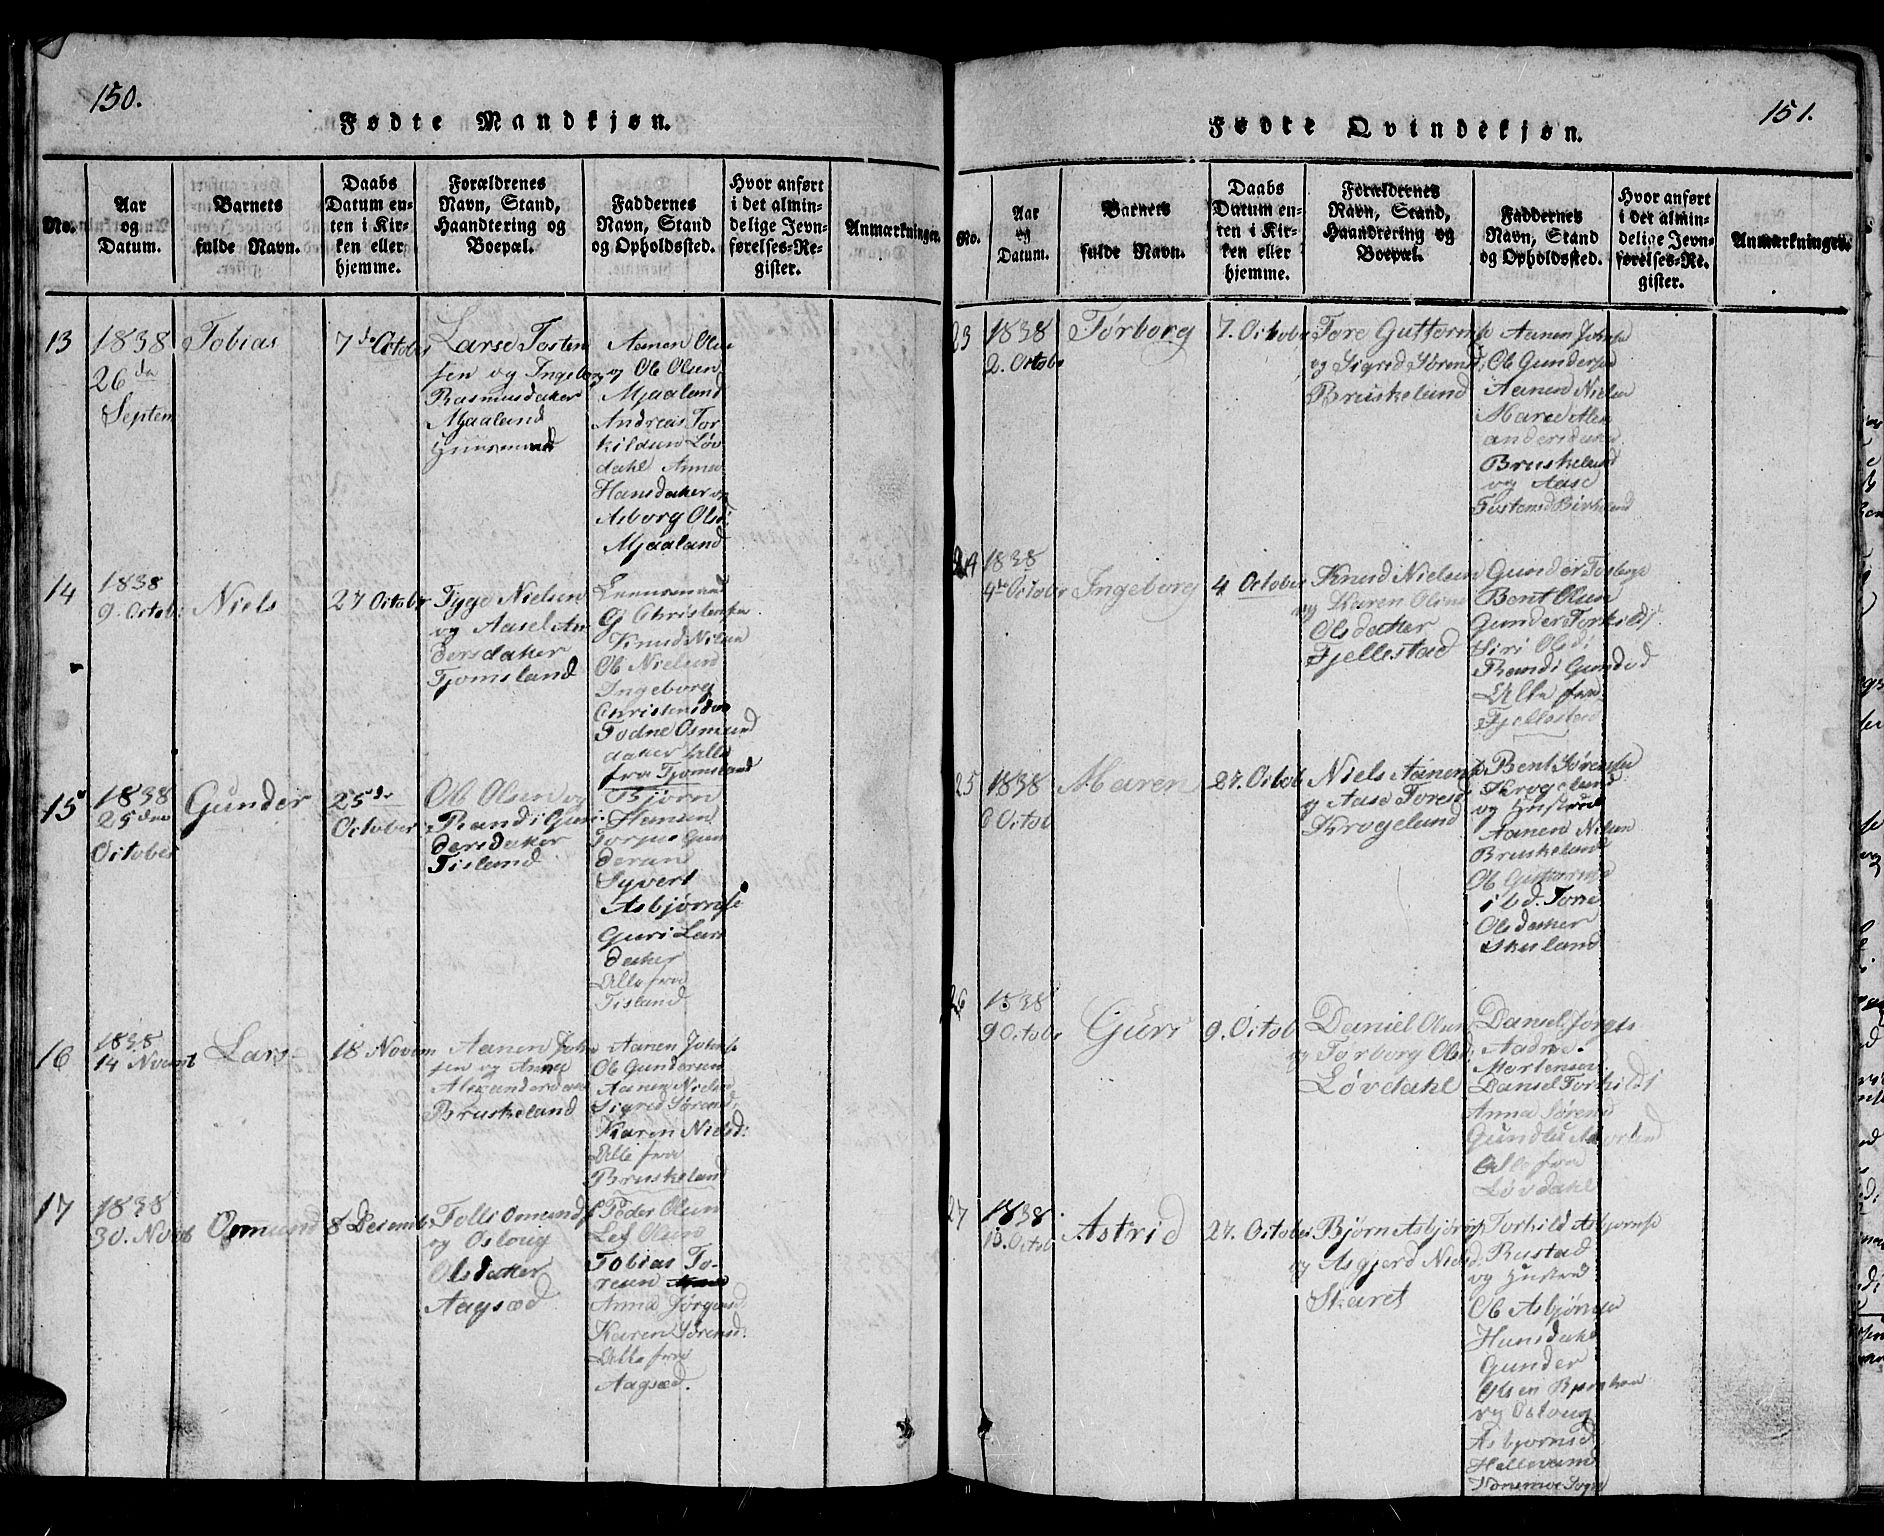 150.
Fødte Mandkjøn.
No.
Aar
og
Datum.
Barnets
fulde Navn.
Daabs
Datum en-
ten i Kir-
ken eller
hjemme.
Forældrenes
Navn, Stand,
Haandtering og
Boepæl.
Faddernes
Navn, Stand
og Opholdssted.
Hvor anført
i det almin-
delige Jevn-
førelses-Re-
gister.
Anmærkninger.
13
1838
26 de
Septem
Tobias
7 de Octobr
Larse Tosten
sen og Ingeborg
Rasmusdatter
Mjaaland
Huusmand
Aanen Olse
og Ole Olsen
Mjaaland
Andreas Tor
kildsen Løv
dahl Anna
Hansdatter og
Asborg Olsd:
Mjaaland
14
1838
9. Octobr
Niels
27 Octobr
Tyge Nielsen
og Aasel An
dersdatter
Fjomsland
G Christensen
Knud Nilsen
Ole Nielsen
Ingeborg
Christensdr
Todne Osmund
datter Alle
fra Fjomsland
15
1838
25 den
October
Gunder
25 de
October
Ole Olsen og
Randi Gun
dersdatter
Tisland
Bjørn
Hansen
Torjus Gun
dersen
Syvert
Asbjørnse
Guri Lars
datter
Alle fra
Tisland
16
1838
14 Novemb
Lars
18 Novem
Aanen John
sen og Anna
Alexandersdatter
Bruskeland
Aanen Johnse
Ole Gundersen
Aanen Nielse
Sigred Sørensd:
Karen Nielsd:
Alle fra
Bruskeland
17
1838
30. Novb
Osmund
8 Desemb
Tolli Omunds
og Oslaug
Olsdatter
Aagsæd
Peder Olsen
Lef Olsen
Tobias To-
resen
Anna Jørgensd
Karen Sørensd:
Alle fra
Aagsæd.
151.
Fødte Qvindekjøn.
No.
Aar
og
Datum.
Barnets
fulde Navn.
Daabs
Datum en-
ten i Kir-
ken eller
hjemme.
Forældrenes
Navn, Stand,
Haandtering og
Boepæl.
Faddernes
Navn, Stand
og Opholdssted.
Hvor anført
i det almin-
delige Jevn-
førelses-Re-
gister.
Anmærkninger.
23
1838
2. Octobr
Torborg
7. October
Tore Guttormse
og Sigred Sørensd:
Bruskeland
Aanen Johnse
Ole Gunderse
Aanen Nielse
Maren Alex
andersdatter
Bruskeland
og Aase
Tostensd Birkeland
24
1838
4de Octobr
Ingeborg
4 October
Knud Nielsen
og Karen Olsne
Olsdatter
Fjellestad
Gunder Torberge
Bent Olsen
Gunder Torkilds
Siri Olsd:
Randi Gundsd
Alle fra
Fjellestad
25
1838
6 Octob
Maren
27. Octob
Niels Aanense
og Aase Toresd
Krogeland
Bent Sørense
Krogeland
og Hustrue
Aanen Nilsen
Bruskeland
Ole Guttormse
ibd. Tone
Olsdatter
Skusland
26
1838
9 Octobr
Guri
9. Octob
Daniel Olsen
og Torborg Olsd:
Løvdahl
Daniel Jorgs
Aadne
Mortensen
Daniel Torkilds
Anna Sørensd
Alle fra
Løvdahl
27
1838
13. Octob
Astrid
27. October
Bjørn Asbjørns
og Asgjerd Nielsd:
Skaret
Torkild Asbjørnse
Rustad
og Hustrue
Ole Asbjørnse
Hunsdahl
Gunder
Olsen
og Oslaug
Asbjørnsd
Helleren
Sogn